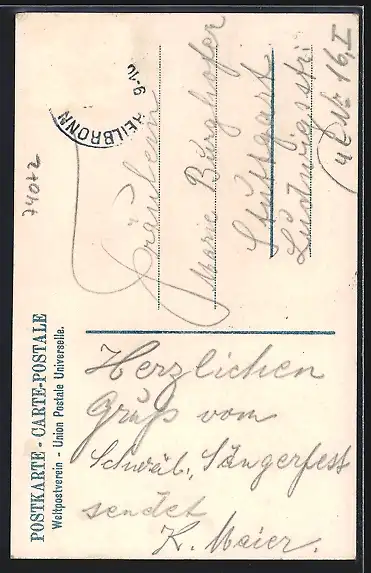 POSTKARTE - CARTE-POSTALE
Weltpostverein - Union Postale Universelle.
HEILBRONN
9-10
74072
Fräulein
Marie Burghofer
Stuttgart
Ludwigsstr.
Nr 16, I
Herzlichen
Gruß vom
Schwäb. Sängerfest
sendet
K. Maier.